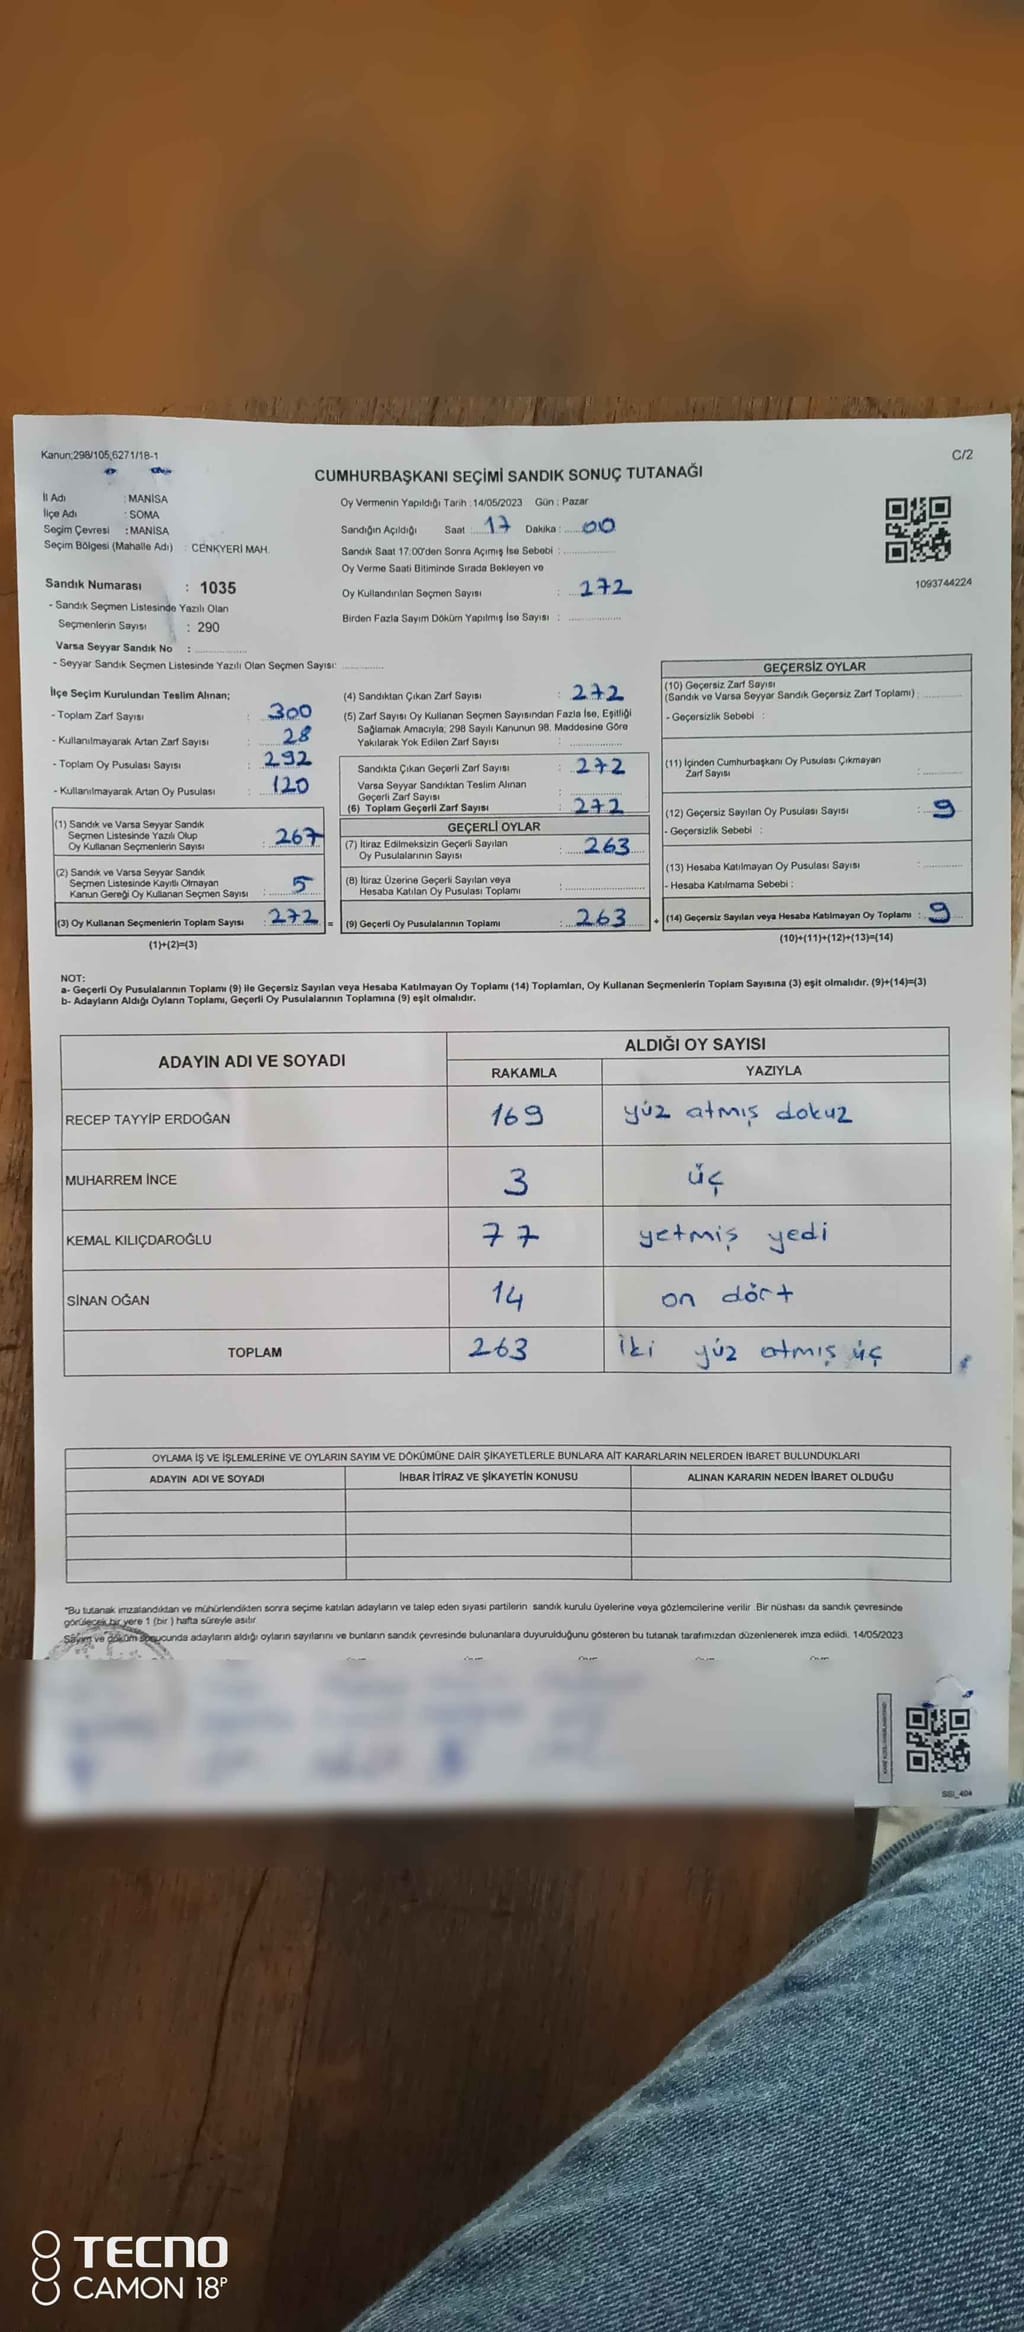 Kanun;298/105,6271/18-1
C/2
CUMHURBAŞKANI SEÇİMİ SANDIK SONUÇ TUTANAĞI
İl Adı : MANİSA
İlçe Adı : SOMA
Seçim Çevresi : MANİSA
Seçim Bölgesi (Mahalle Adı) : CENKYERİ MAH.
Oy Vermenin Yapıldığı Tarih : 14/05/2023 Gün : Pazar
Sandığın Açıldığı Saat : 17 Dakika : 00
Sandık Saat 17.00'den Sonra Açımış İse Sebebi :
Oy Verme Saati Bitiminde Sırada Bekleyen ve
Oy Kullandırılan Seçmen Sayısı : 272
Birden Fazla Sayım Döküm Yapılmış İse Sayısı :
1093744224
Sandık Numarası : 1035
- Sandık Seçmen Listesinde Yazılı Olan
Seçmenlerin Sayısı : 290
Varsa Seyyar Sandık No :
- Seyyar Sandık Seçmen Listesinde Yazılı Olan Seçmen Sayısı:
İlçe Seçim Kurulundan Teslim Alınan;
- Toplam Zarf Sayısı : 300
- Kullanılmayarak Artan Zarf Sayısı : 28
- Toplam Oy Pusulası Sayısı : 292
- Kullanılmayarak Artan Oy Pusulası : 120
(1) Sandık ve Varsa Seyyar Sandık
Seçmen Listesinde Yazılı Olup
Oy Kullanan Seçmenlerin Sayısı : 267
(2) Sandık ve Varsa Seyyar Sandık
Seçmen Listesinde Kayıtlı Olmayan
Kanun Gereği Oy Kullanan Seçmen Sayısı : 5
(3) Oy Kullanan Seçmenlerin Toplam Sayısı : 272 =
(1)+(2)=(3)
(4) Sandıktan Çıkan Zarf Sayısı : 272
(5) Zarf Sayısı Oy Kullanan Seçmen Sayısından Fazla İse, Eşitliği
Sağlamak Amacıyla; 298 Sayılı Kanunun 98. Maddesine Göre
Yakılarak Yok Edilen Zarf Sayısı :
Sandıkta Çıkan Geçerli Zarf Sayısı : 272
Varsa Seyyar Sandıktan Teslim Alınan
Geçerli Zarf Sayısı :
(6) Toplam Geçerli Zarf Sayısı : 272
GEÇERLİ OYLAR
(7) İtiraz Edilmeksizin Geçerli Sayılan
Oy Pusulalarının Sayısı : 263
(8) İtiraz Üzerine Geçerli Sayılan veya
Hesaba Katılan Oy Pusulası Toplamı :
(9) Geçerli Oy Pusulalarının Toplamı : 263 +
GEÇERSİZ OYLAR
(10) Geçersiz Zarf Sayısı
(Sandık ve Varsa Seyyar Sandık Geçersiz Zarf Toplamı) :
- Geçersizlik Sebebi :
(11) İçinden Cumhurbaşkanı Oy Pusulası Çıkmayan
Zarf Sayısı :
(12) Geçersiz Sayılan Oy Pusulası Sayısı : 9
- Geçersizlik Sebebi :
(13) Hesaba Katılmayan Oy Pusulası Sayısı :
- Hesaba Katılmama Sebebi :
(14) Geçersiz Sayılan veya Hesaba Katılmayan Oy Toplamı : 9
(10)+(11)+(12)+(13)=(14)
NOT:
a- Geçerli Oy Pusulalarının Toplamı (9) ile Geçersiz Sayılan veya Hesaba Katılmayan Oy Toplamı (14) Toplamları, Oy Kullanan Seçmenlerin Toplam Sayısına (3) eşit olmalıdır. (9)+(14)=(3)
b- Adayların Aldığı Oyların Toplamı, Geçerli Oy Pusulalarının Toplamına (9) eşit olmalıdır.
ADAYIN ADI VE SOYADI
ALDIĞI OY SAYISI
RAKAMLA YAZIYLA
RECEP TAYYİP ERDOĞAN 169 yüz atmış dokuz
MUHARREM İNCE 3 üç
KEMAL KILIÇDAROĞLU 77 yetmiş yedi
SİNAN OĞAN 14 on dört
TOPLAM 263 iki yüz atmış üç
OYLAMA İŞ VE İŞLEMLERİNE VE OYLARIN SAYIM VE DÖKÜMÜNE DAİR ŞİKAYETLERLE BUNLARA AİT KARARLARIN NELERDEN İBARET BULUNDUKLARI
ADAYIN ADI VE SOYADI İHBAR İTİRAZ VE ŞİKAYETİN KONUSU ALINAN KARARIN NEDEN İBARET OLDUĞU
"Bu tutanak imzalandıktan ve mühürlendikten sonra seçime katılan adayların ve talep eden siyasi partilerin sandık kurulu üyelerine veya gözlemcilerine verilir. Bir nüshası da sandık çevresinde
görülecek bir yere 1 (bir ) hafta süreyle asılır.
Sayım ve döküm sonucunda adayların aldığı oyların sayılarını ve bunların sandık çevresinde bulunanlara duyurulduğunu gösteren bu tutanak tarafımızdan düzenlenerek imza edildi. 14/05/2023
SSI_404
TECNO
CAMON 18P